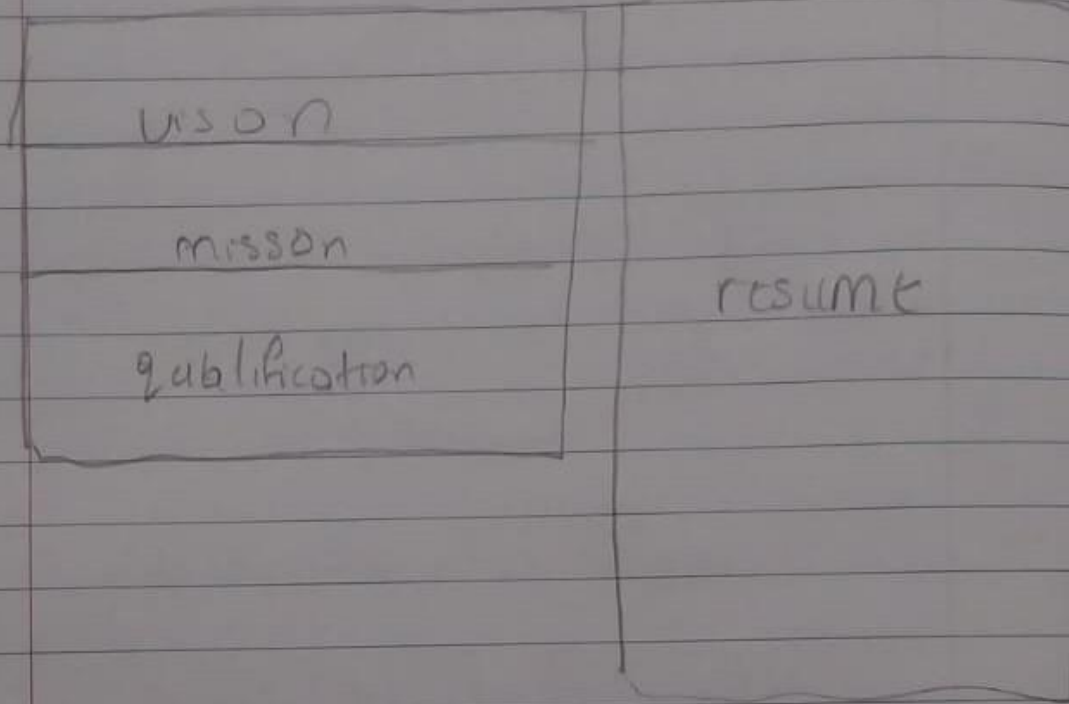 vison
misson
qublification
resume